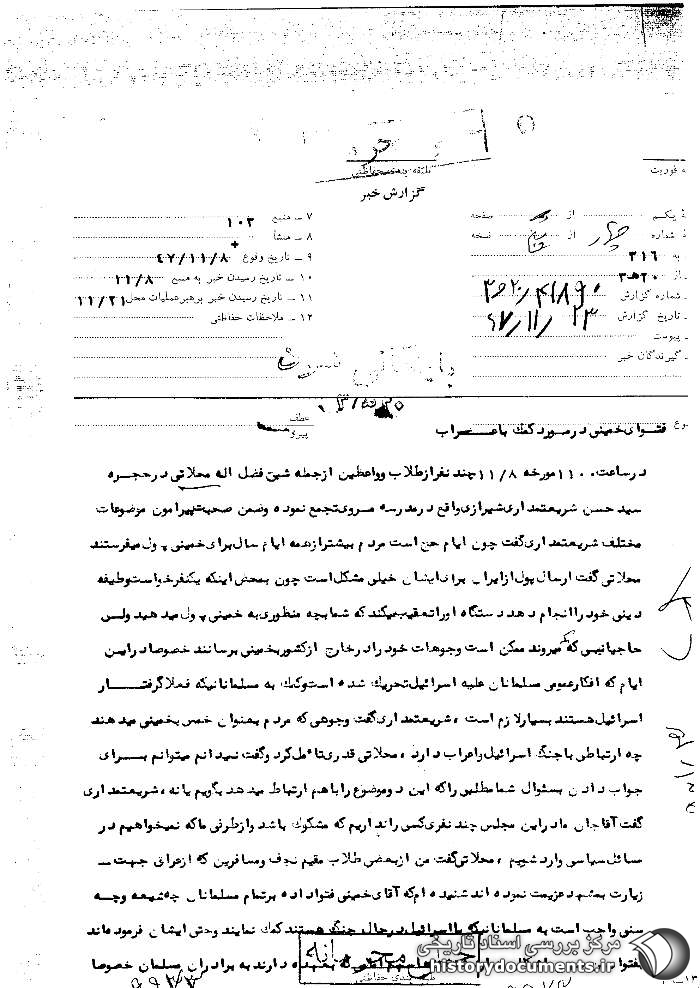 طبقه بندی حفاظتی
گزارش خبر
۷ ـ منبع ۱۰۳
۸ ـ منشأ
۹ ـ تاریخ وقوع ۴۷/۱۱/۸
۱۰ ـ تاریخ رسیدن خبر به منبع ۱۱/۸
۱۱ ـ تاریخ رسیدن خبر برهبر عملیات محل ۱۱/۲۱
۱۲ ـ ملاحظات حفاظتی
از صفحه
شماره چهار از نسخه
به ۳۱۶
شماره گزارش
تاریخ گزارش
پیوست
گیرندگان خبر
بایگانی شود
عطف
پیرو
فتوای خمینی در مورد کمک باعراب
در ساعت ۱۱۰۰ مورخه ۱۱/۸ چند نفر از طلاب و واعظین از جمله شیخ فضل اله محلاتی در حجره
سید حسن شریعتمداری شیرازی واقع در مدرسه مروی تجمع نموده و ضمن صحبت پیرامون موضوعات
مختلف شریعتمداری گفت چون ایام حج است مردم بیشتر از همه ایام سال برای خمینی پول میفرستند
محلاتی گفت ارسال پول از ایران برای ایشان خیلی مشکل است چون بمحض اینکه یکنفر خواست وظیفه
دینی خود را انجام دهد دستگاه او را تعقیب میکند که شما بچه منظوری به خمینی پول میدهید ولی
حاجیانیکه میروند ممکن است وجوهات خود را در خارج از کشور بخمینی برسانند خصوصا در این
ایام که افکار عمومی مسلمانان علیه اسرائیل تحریک شده است و کمک به مسلمانانیکه فعلا گرفتار
اسرائیل هستند بسیار لازم است ، شریعتمداری گفت وجوهی که مردم بعنوان خمس بخمینی میدهند
چه ارتباطی با جنگ اسرائیل و اعراب دارد ، محلاتی قدری تأمل کرد و گفت نمیدانم میتوانم برای
جواب دادن بسئوال شما مطلبی را که این دو موضوع را با هم ارتباط میدهد بگویم یا نه ، شریعتمداری
گفت آقاجان ما در این مجلس چند نفری کسی را نداریم که مشکوک باشد و از طرفی ما که نمیخواهیم در
مسائل سیاسی وارد شویم ، محلاتی گفت من از بعضی طلاب مقیم نجف و مسافرین که از عراق جهت
زیارت بمشهد عزیمت نموده اند شنیده ام که آقای خمینی فتوا داده بر تمام مسلمانان چه شیعه و چه
سنی واجب است به مسلمانانیکه با اسرائیل در حال جنگ هستند کمک نمایند و حتی ایشان فرموده اند
دارند به برادران مسلمان خصوصا
خیلی محرمانه
طبقه بندی حفاظتی
مرکز بررسی اسناد تاریخی
historydocuments.ir